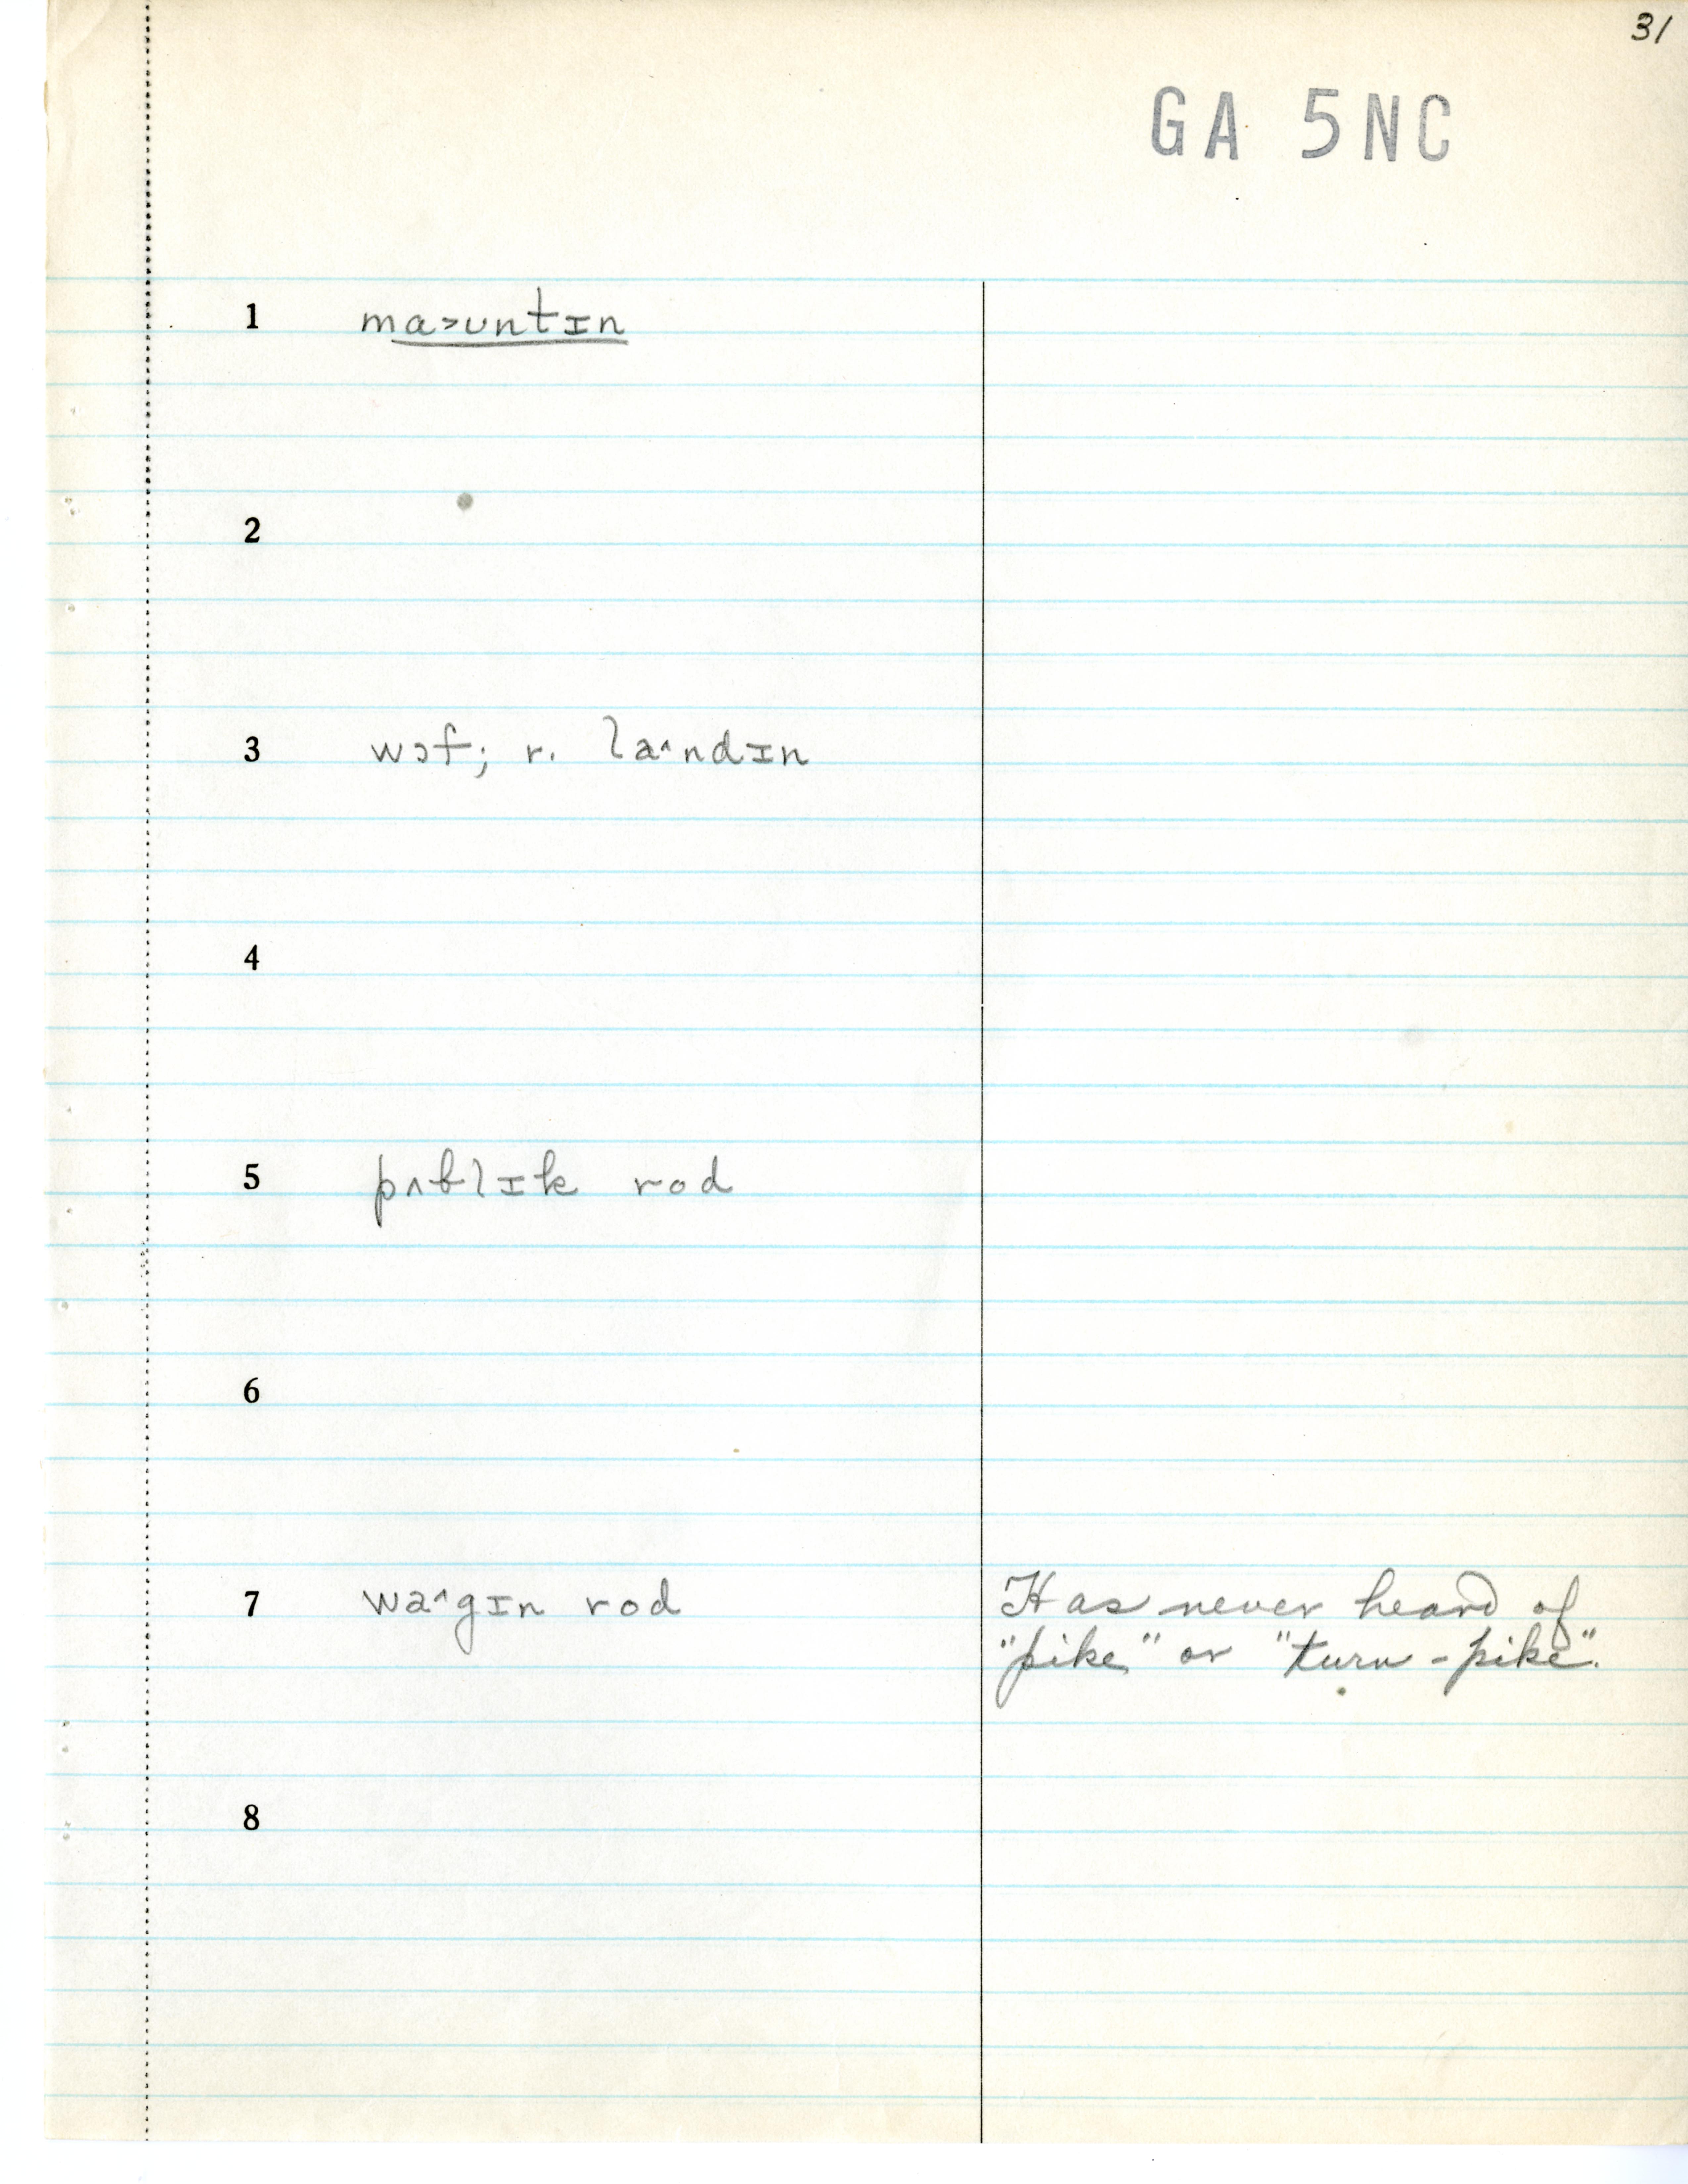 31
GA 5NC
1 ma>ʊntɪn
2
3 wɔf; r. la^ndɪn
4
5 pʌblɪk rod
6
7 wa^gɪn rod Has never heard of
"pike" or "turn-pike".
8